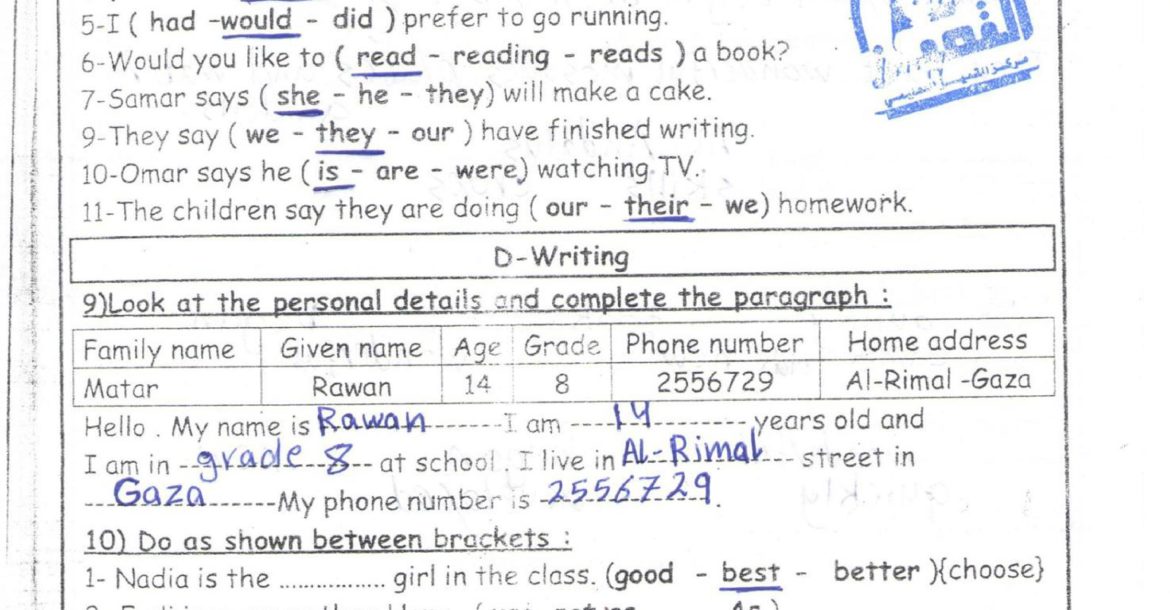 5-I ( had -would - did ) prefer to go running.
6-Would you like to ( read - reading - reads ) a book?
7-Samar says ( she - he - they) will make a cake.
9-They say ( we - they - our ) have finished writing.
10-Omar says he ( is - are - were) watching TV.
11-The children say they are doing ( our - their - we) homework.
D-Writing
9)Look at the personal details and complete the paragraph :
Family name Given name Age Grade Phone number Home address
Matar Rawan 14 8 2556729 Al-Rimal -Gaza
Hello . My name is Rawan-------I am ----14---------years old and
I am in --grade 8-- at school . I live in AL-Rimal--- street in
---Gaza-------My phone number is -2556729.
10) Do as shown between brackets :
1- Nadia is the ................. girl in the class. (good - best - better ){choose}